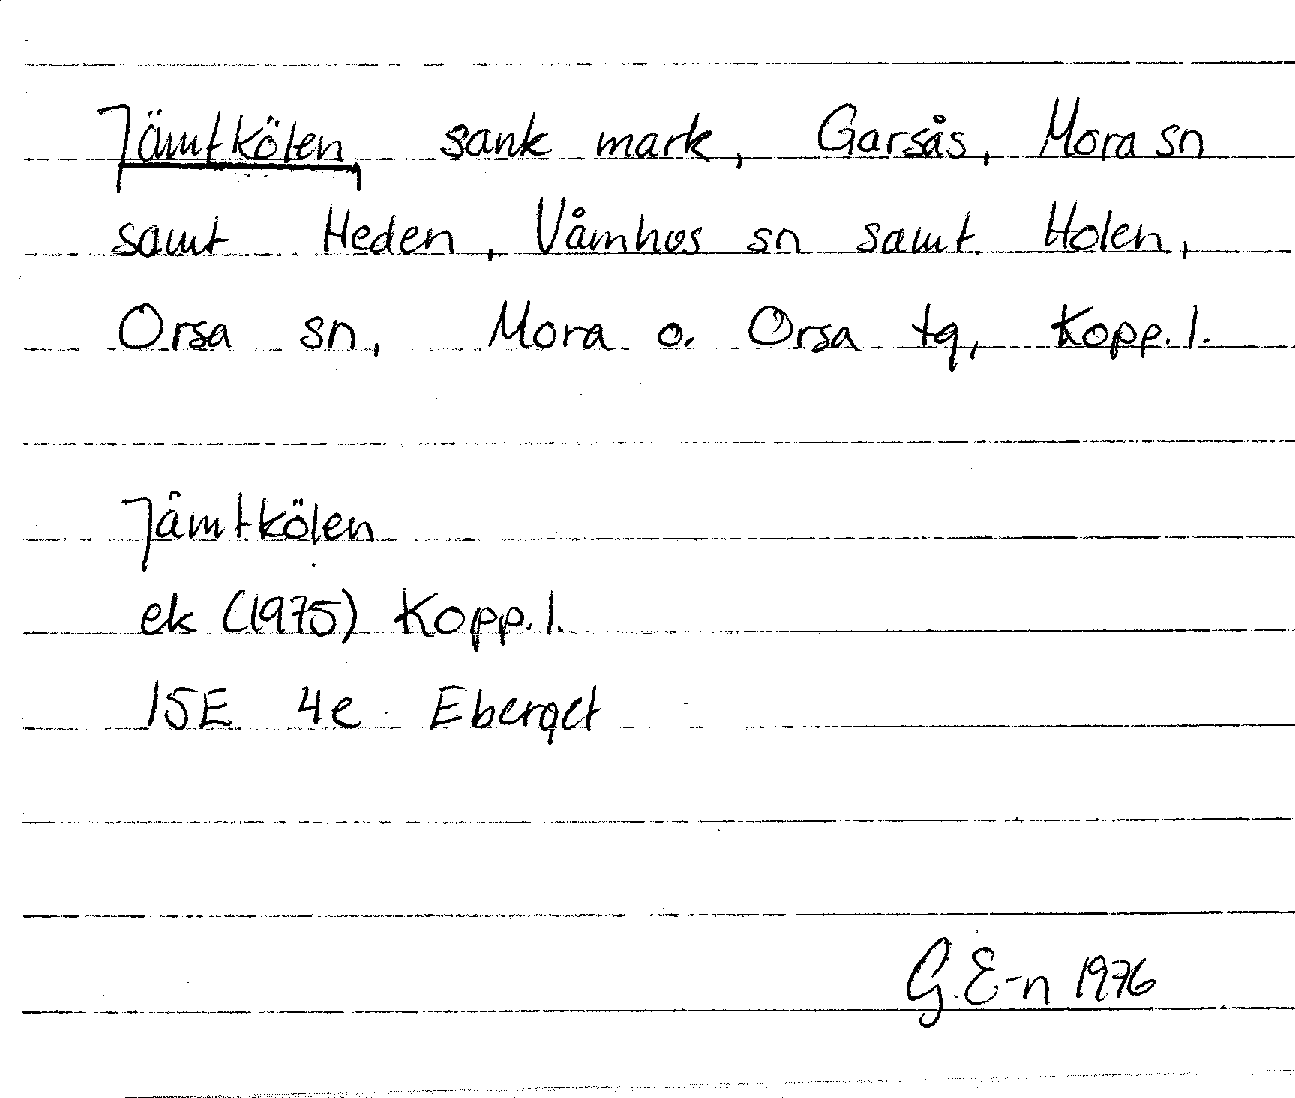 Jämtkölen, sank mark, Garsås, Mora sn
samt Heden, Våmhus sn samt Holen,
Orsa sn, Mora o. Orsa tg, Kopp.l.
Jämtkölen
ek (1975) Kopp.l.
15E 4e Eberget
G.E-n 1976